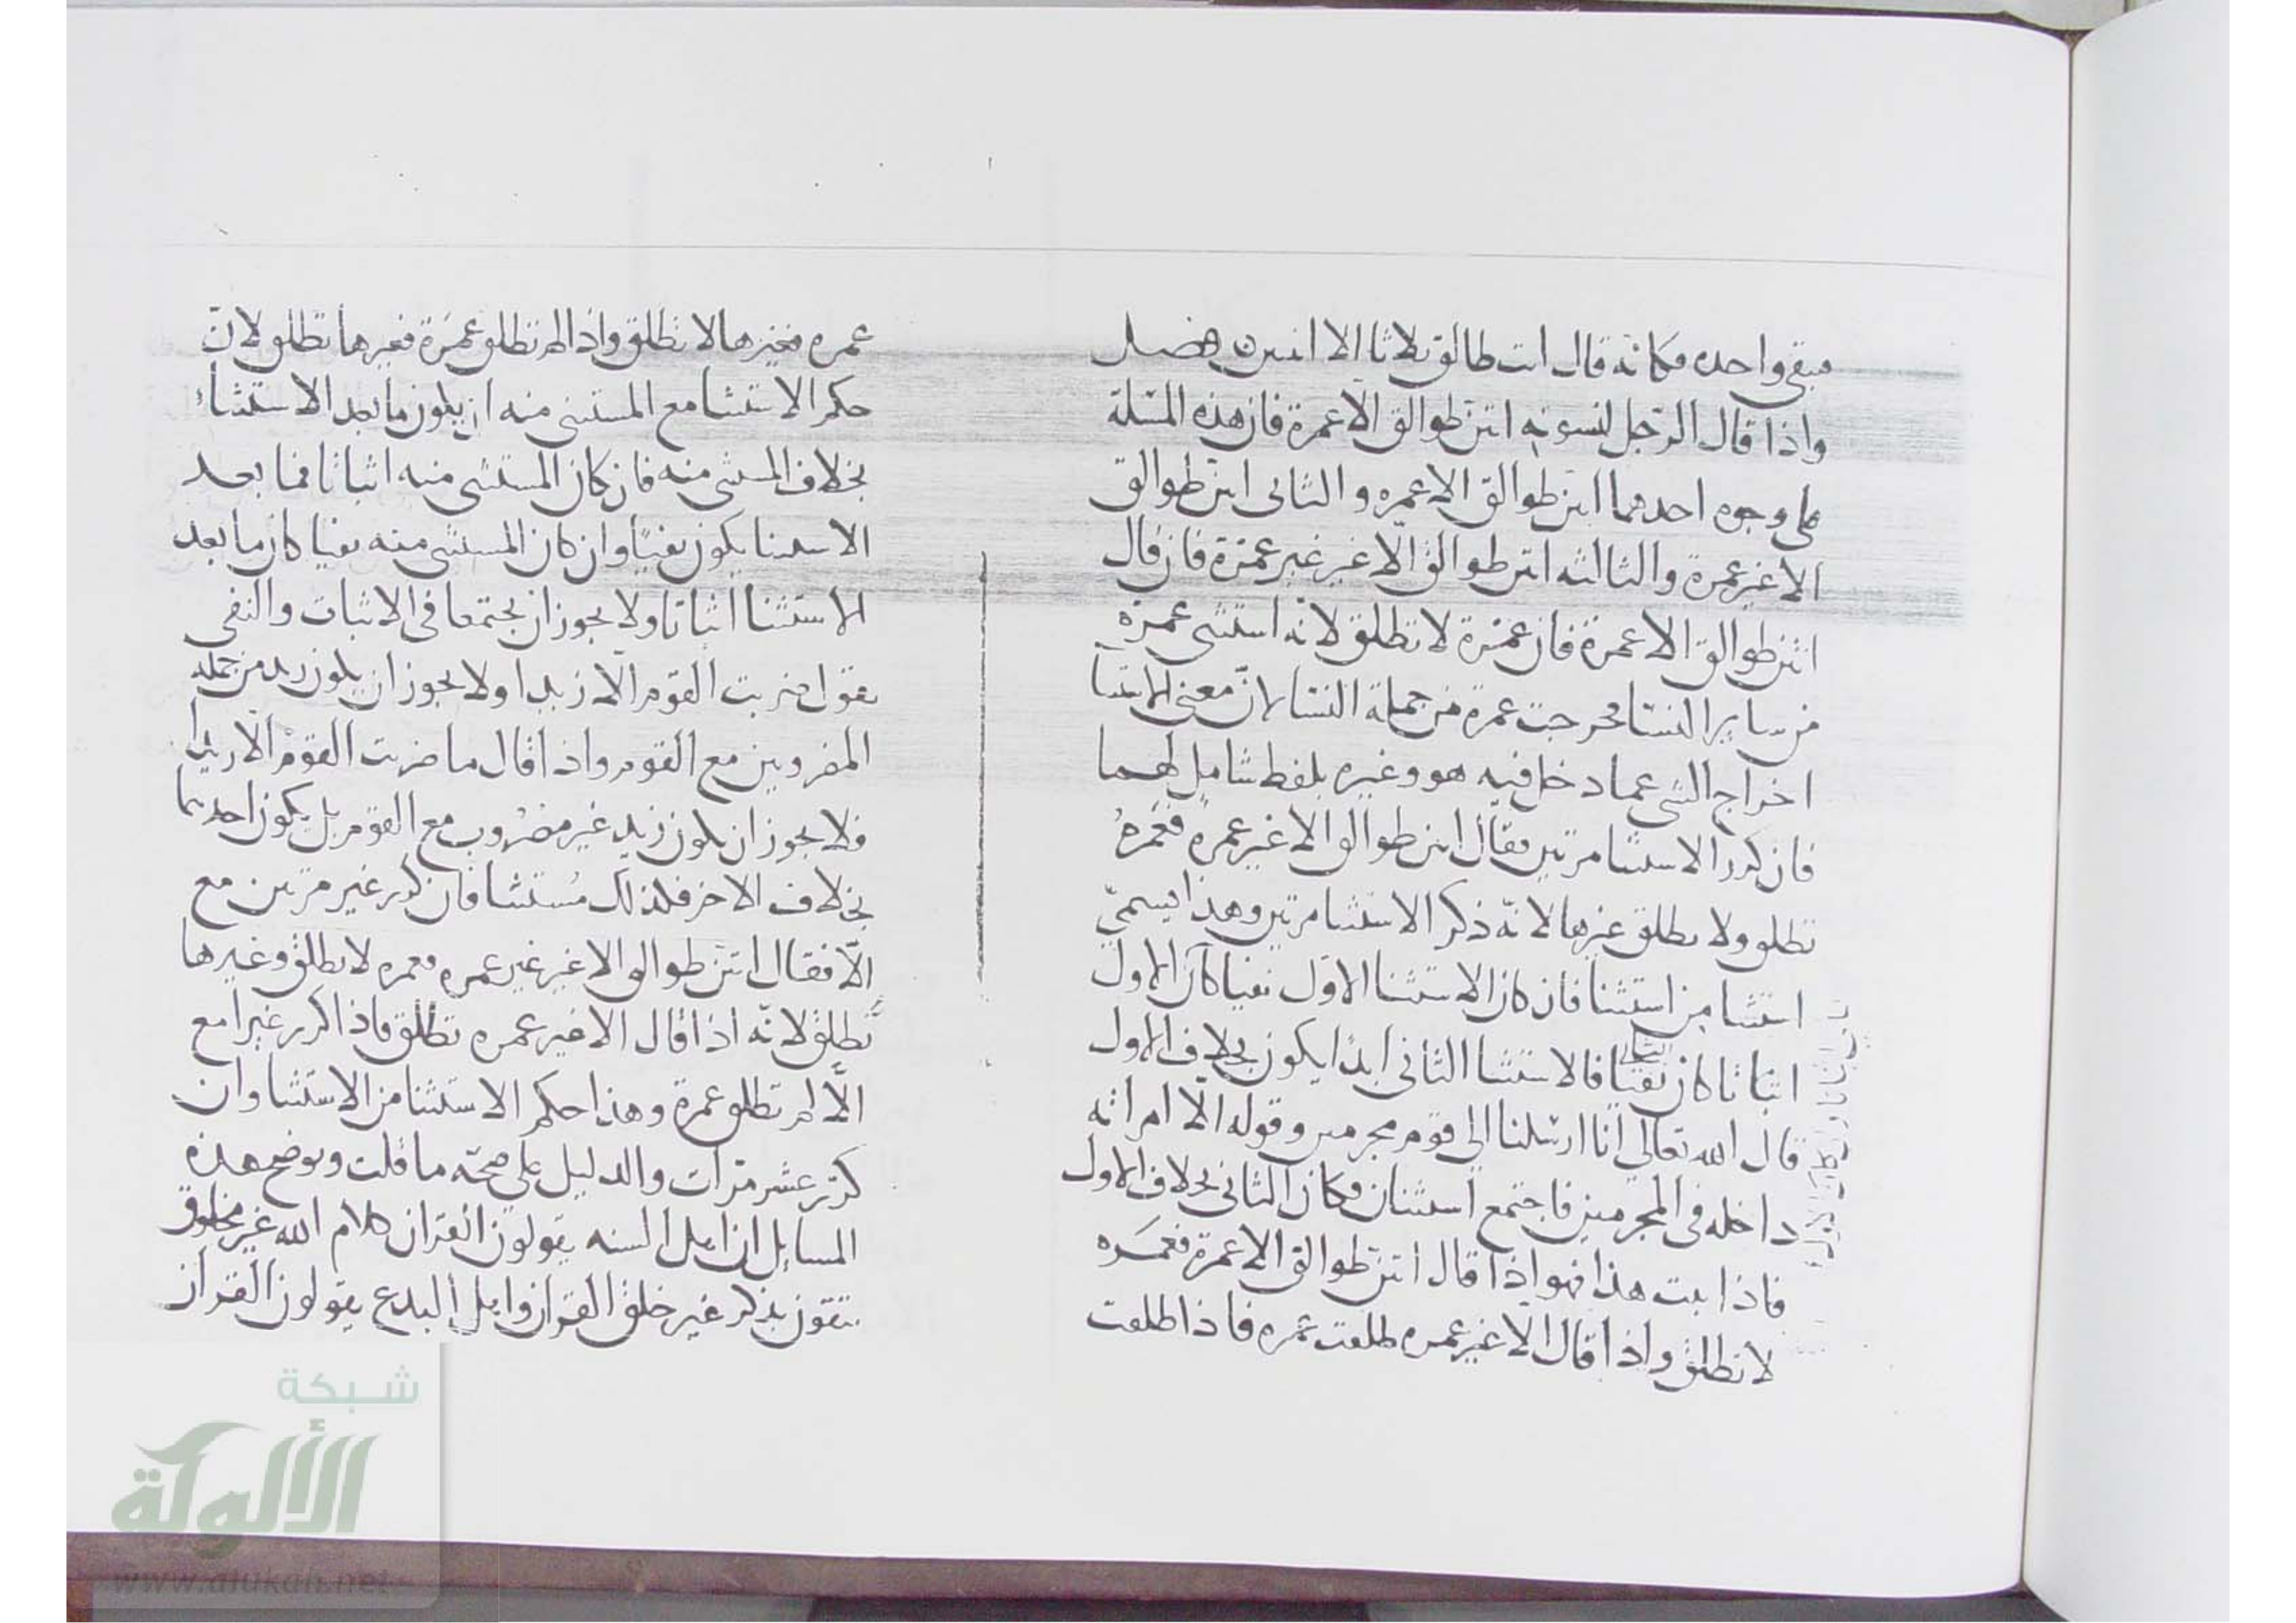 فبقى واحده فكانه قال انت طالق ثلاثا الا اثنين فصل
واذا قال الرجل لنسوته انتن طوالق الا عمرة فان هذه المسئلة
على وجوه احدهما انتن طوالق الا عمره والثانى انتن طوالق
الا غير عمرة والثالثه انتن طوالق الا غير غير عمرة فان قال
انتن طوالق الا عمرة فان عمرة لا تطلق لانه استثنى عمرة
من ساير النسا فخرجت عمرة من جملة النسا لان معنى الاستثنا
اخراج الشى عما دخل فيه هو وغيره بلفظ شامل لهما
فان كرر الاستثنا مرتين فقال انتن طوالق الا غير عمره فعمرة
تطلق ولا يطلق غيرها لانه ذكر الاستثنا مرتين وهذا يسمى
استثنا من استثنا فان كان الاستثنا الاول نفيا كان الاول
اثباتا كان الثانى نفيا فالاستثنا الثانى ابدا يكون بخلاف الاول
قال الله تعالى انا ارسلنا الى قوم مجرمين وقوله الا امراته
داخله فى المجرمين فاجتمع استثنان فكان الثانى بخلاف الاول
فاذا ثبت هذا فهو اذا قال انتن طوالق الا عمرة فعمره
لا تطلق واذا قال الا غير عمره طلقت عمره فاذا طلقت
عمره فغيرها لا تطلق واذا لم تطلق عمرة فغيرها تطلق لان
حكم الاستثنا مع المستثنى منه ان يكون ما بعد الاستثناء
بخلاف المستثنى منه فان كان المستثنى منه اثباتا فما بعد
الاستثنا يكون نفيا وان كان المستثنى منه نفيا كان ما بعد
الاستثنا اثباتا ولا يجوز ان يجتمعا فى الاثبات والنفى
يقول ضربت القوم الا زيدا ولا يجوز ان يكون زيد من جملة
المضروبين مع القوم واذا قال ما ضربت القوم الا زيدا
فلا يجوز ان يكون زيد غير مضروب مع القوم بل يكون احدهما
بخلاف الاخر فلذلك مستثنا فان كرر غير مرتين مع
الا فقال انتن طوالق الا غير غير عمره فعمره لا تطلق وغيرها
تطلق لانه اذا قال الا غير عمره تطلق فاذا كرر غيرا مع
الا لم تطلق عمرة وهذا حكم الاستثنا من الاستثنا وان
كرر عشر مرات والدليل على صحة ما قلت ويوضح هذه
المسايل ان اهل السنه يقولون القران كلام الله غير مخلوق
يتقون بذكر غير خلق القران واهل البدع يقولون القران
شبكة
الألوكة
www.alukah.net